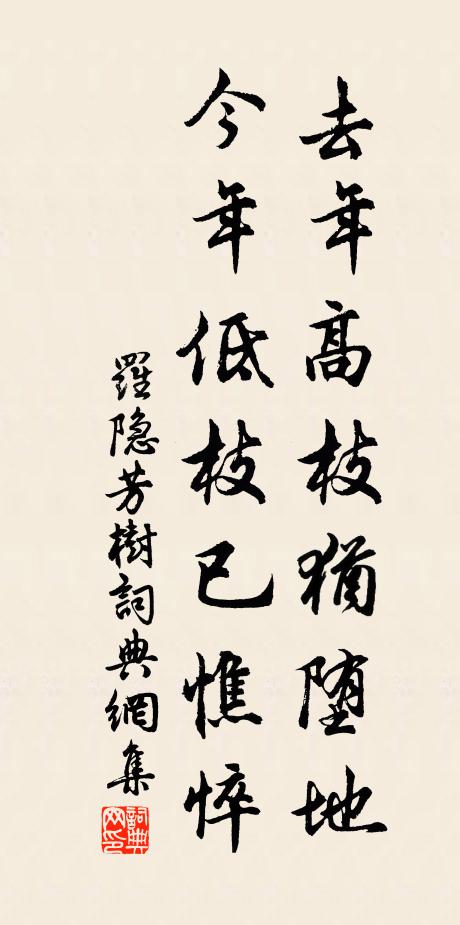 去年高枝猶堕地
今年低枝已憔悴
羅隐芳樹詞典網集
詞典网印